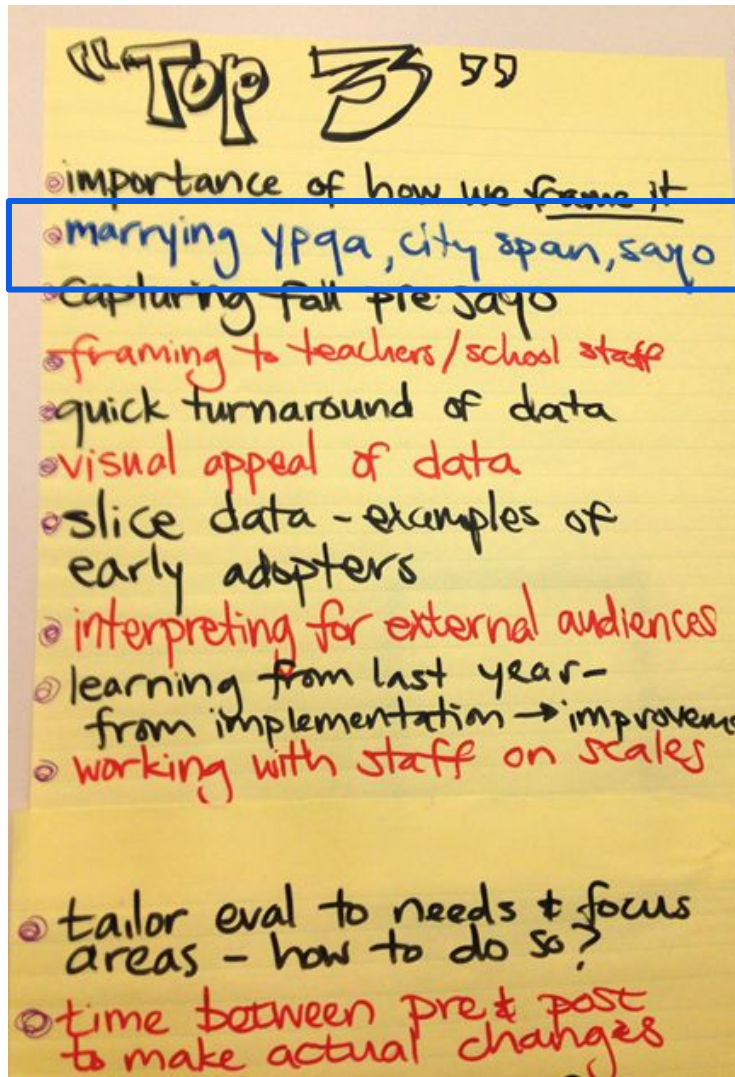 "Top 3"
importance of how we frame it
marrying ypqa, city span, sayo
capturing fall pre sayo
framing to teachers/school staff
quick turnaround of data
visual appeal of data
slice data - examples of
early adopters
interpreting for external audiences
learning from last year-
from implementation → improveme
working with staff on scales
tailor eval to needs & focus
areas - how to do so?
time between pre & post
to make actual changes